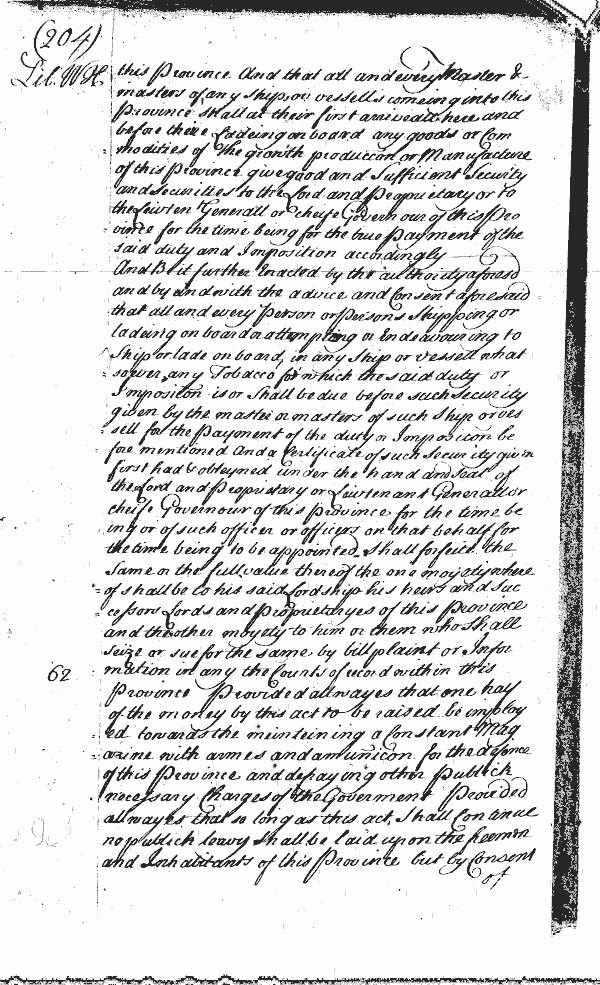 (204)
Lib. WH
this Province And that all and every Master &
masters of any Ship, or vessells comeing into this
Province shall at their first arriveall here and
before there Ladeing on board any goods or Com
modities of the growth production or Manufacture
of this Province give good and Sufficient Security
and securities to the Lord and Proprietary or to
the Lievten.t Generall or cheife Governour of this Pro
vince for the time being for the true Payment of the
said duty and Imposition accordingly
And B it further Enacted by the authority aforesd
and by and with the advice and Consent aforesaid
that all and every Person or Persons Shipping or
ladeing on board or attempting or Endeavouring to
Ship or lade on board, in any Ship or vessell what
soever any Tobacco for which the said duty or
Imposicon is or Shall be due before such Security
given by the master or masters of such Ship or ves
sell for the Payment of the duty or Imposicon be
fore mentioned And a Certificate of such Security given
first had & obteyned under the hand and seal of
the Lord and Proprietary or Lievtenant Generall or
cheife Governour of this Province for the time be
ing or of such officer or officers on that behalf for
the time being to be appointed Shall forfeit the
Same or the full value thereof the one moyety where
of shall be to his said Lordship his heirs and Suc
cessors Lords and Proprietaryes of this Province
and the other moyety to him or them who Shall
seize or sue for the same by bill plaint or Infor
62
mation in any the Courts of record within this
Province Provided allwayes that one half
of the money by this act to be raised be imploy
ed towards the meinteining a Constant Mag
azine with armes and amunicon for the defence
of this Province and defraying other Publick
necessary Charges of the Goverment Provided
allwayes that so long as this act, Shall Continue
no publick leavy shall be laid upon the freemen
and Inhabitants of this Province but by Consent
of